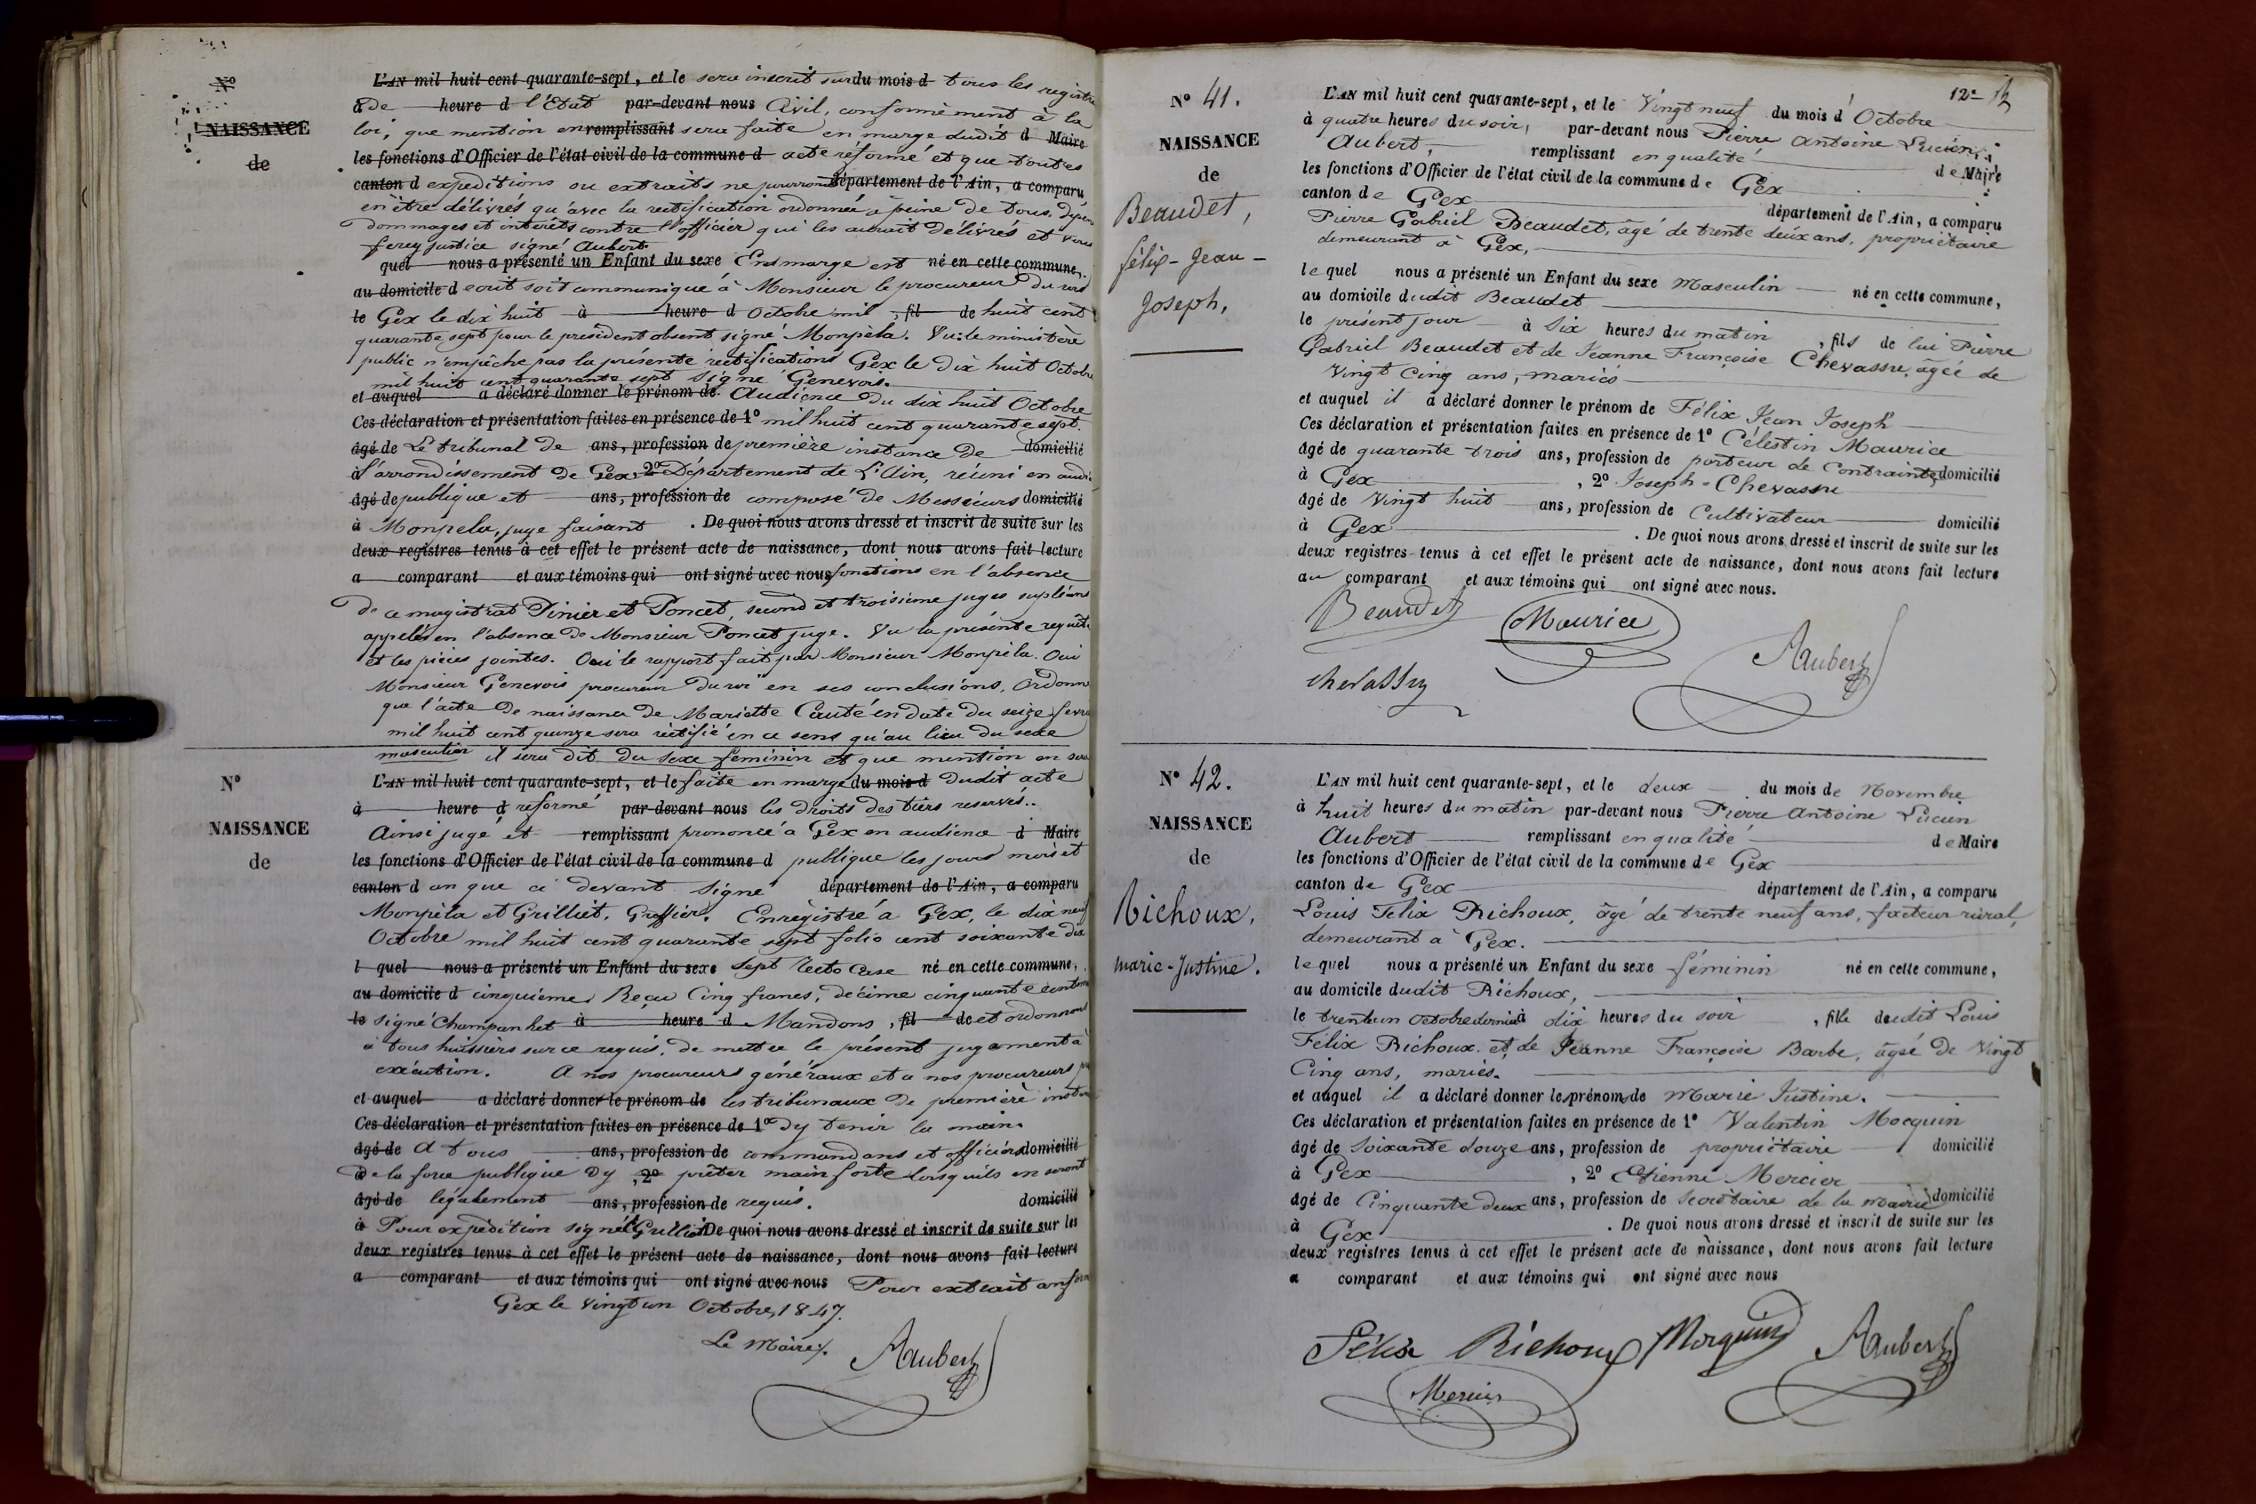 N°
NAISSANCE
de
L'AN mil huit cent quarante-sept, et le sera inscrit sur du mois d tous les registres
à de heure d l'Etat par-devant nous Civil, conformément à la
loi, que mention en remplissant sera faite en marge dudit d Maire
les fonctions d'Officier de l'état civil de la commune d acte réformé et que toutes
canton d expeditions ou extraits ne pourront département de l'Ain, a comparu
en être délivrés qu'avec la rectification ordonnée à peine de tous dépens
dommages et intérêts contre l'officier qui les aurait délivrés et vous
ferez justice signé Aubert.
quel nous a présenté un Enfant du sexe En marge est né en cette commune,
au domicile d ecrit soit communiqué à Monsieur le procureur du roi
le Gex le dix huit à heure d Octobre mil , fil de huit cent
quarante sept pour le président absent signé Monpéla. Vu: le ministère
public n'empêche pas la présente rectifications Gex le dix huit Octobre
mil huit cent quarante sept signé Genevois.
et auquel a déclaré donner le prénom de Audience du dix huit Octobre
Ces déclaration et présentation faites en présence de 1° mil huit cent quarante sept.
âgé de Le tribunal de ans, profession de première instance de domicilié
à l'arrondissement de Gex 2° Département de L'Ain, réuni en audi
âgé de publique et ans, profession de composé de Messieurs domicilié
à Monpela, juge faisant . De quoi nous avons dressé et inscrit de suite sur les
deux registres tenus à cet effet le présent acte de naissance, dont nous avons fait lecture
a comparant et aux témoins qui ont signé avec nous fonctions en l'absence
de ce magistrat Pinier et Poncet, second et troisième juges supléans
appelés en l'absence de Monsieur Poncet juge. Vu la présente requête
et les pièces jointes. Oui le rapport fait par Monsieur Monpèla. Oui
Monsieur Genevois procureur du roi en ses conclusions, Ordonne
que l'acte de naissance de Mariette Cauté en date du seize fevri
mil huit cent quinze sera rectifié en ce sens qu'au lieu du sexe
masculin il sera dit du sexe feminin et que mention en sera
N°
NAISSANCE
de
L'AN mil huit cent quarante-sept, et le faite en marge du mois d dudit acte
à heure d reformé par-devant nous les droits des tiers reservés.
Ainsi jugé et remplissant prononcé a Gex en audience d Maire
les fonctions d'Officier de l'état civil de la commune d publique les jours mois et
canton d an que ci devant signé département de l'Ain, a comparu
Monpèla et Grilliet, Greffier. Enregistré a Gex, le dix neuf
Octobre mil huit cent quarante sept folio cent soixante dix
l quel nous a présenté un Enfant du sexe sept recto Case né en cette commune,
au domicile d cinquième. Reçu Cinq francs, décime cinquante centimes
le signé Champanhet à heure d Mandons , fil de et ordonnons
à tous huissiers sur ce requis, de mettre le présent jugement à
exécution. A nos procureurs généraux et a nos procureurs
et auquel a déclaré donner le prénom de les tribunaux de première instan
Ces déclaration et présentation faites en présence de 1° dy tenir la main.
âgé de A tous ans, profession de commandans et officiers domicilié
à de la force publique dy , 2° prêter main forte lorsquils en seront
âgé de légalement ans, profession de requis. domicilié
à Pour expédition signé Grilliet De quoi nous avons dressé et inscrit de suite sur les
deux registres tenus à cet effet le présent acte de naissance, dont nous avons fait lecture
a comparant et aux témoins qui ont signé avec nous Pour extrait conforme
Gex le vingt un Octobre, 1847.
Le Maire.
Aubert
12e
N° 41.
NAISSANCE
de
Beaudet,
félix-Jean-
Joseph,
L'AN mil huit cent quarante-sept, et le Vingt neuf du mois d'Octobre
à quatre heures du soir, par-devant nous Pierre Antoine Lucien
Aubert, remplissant en qualité de Maire
les fonctions d'Officier de l'état civil de la commune de Gex
canton de Gex département de l'Ain, a comparu
Pierre Gabriel Beaudet, âgé de trente deux ans, propriétaire
demeurant à Gex,
lequel nous a présenté un Enfant du sexe Masculin né en cette commune,
au domicile dudit Beaudet
le présent jour à Six heures du matin , fils de lui Pierre
Gabriel Beaudet et de Jeanne Françoise Chevassu, âgée de
Vingt Cinq ans, mariés
et auquel il a déclaré donner le prénom de Félix Jean Joseph
Ces déclaration et présentation faites en présence de 1° Célestin Maurice
âgé de quarante trois ans, profession de porteur de Contraintes domicilié
à Gex , 2° Joseph Chevassu
âgé de Vingt huit ans, profession de Cultivateur domicilié
à Gex . De quoi nous avons dressé et inscrit de suite sur les
deux registres tenus à cet effet le présent acte de naissance, dont nous avons fait lecture
au comparant et aux témoins qui ont signé avec nous.
Beaudet Maurice
chevassu Aubert
N° 42.
NAISSANCE
de
Richoux,
marie-Justine.
L'AN mil huit cent quarante-sept, et le deux du mois de Novembre
à huit heures du matin par-devant nous Pierre Antoine Lucien
Aubert remplissant en qualité de Maire
les fonctions d'Officier de l'état civil de la commune de Gex
canton de Gex département de l'Ain, a comparu
Louis Félix Richoux, âgé de trente neuf ans, facteur rural,
demeurant à Gex.
lequel nous a présenté un Enfant du sexe féminin né en cette commune,
au domicile dudit Richoux,
le trente un Octobre dernier à dix heures du soir , fille dudit Louis
Félix Richoux et de Jeanne Françoise Barbe, âgée de Vingt
Cinq ans, mariés.
et auquel il a déclaré donner les prénoms de Marie Justine.
Ces déclaration et présentation faites en présence de 1° Valentin Mocquin
âgé de Soixante douze ans, profession de propriétaire domicilié
à Gex , 2° Etienne Mercier
âgé de Cinquante deux ans, profession de Secrétaire de la mairie domicilié
à Gex . De quoi nous avons dressé et inscrit de suite sur les
deux registres tenus à cet effet le présent acte de naissance, dont nous avons fait lecture
a comparant et aux témoins qui ont signé avec nous
Félix Richoux Morquin Aubert
Mercier